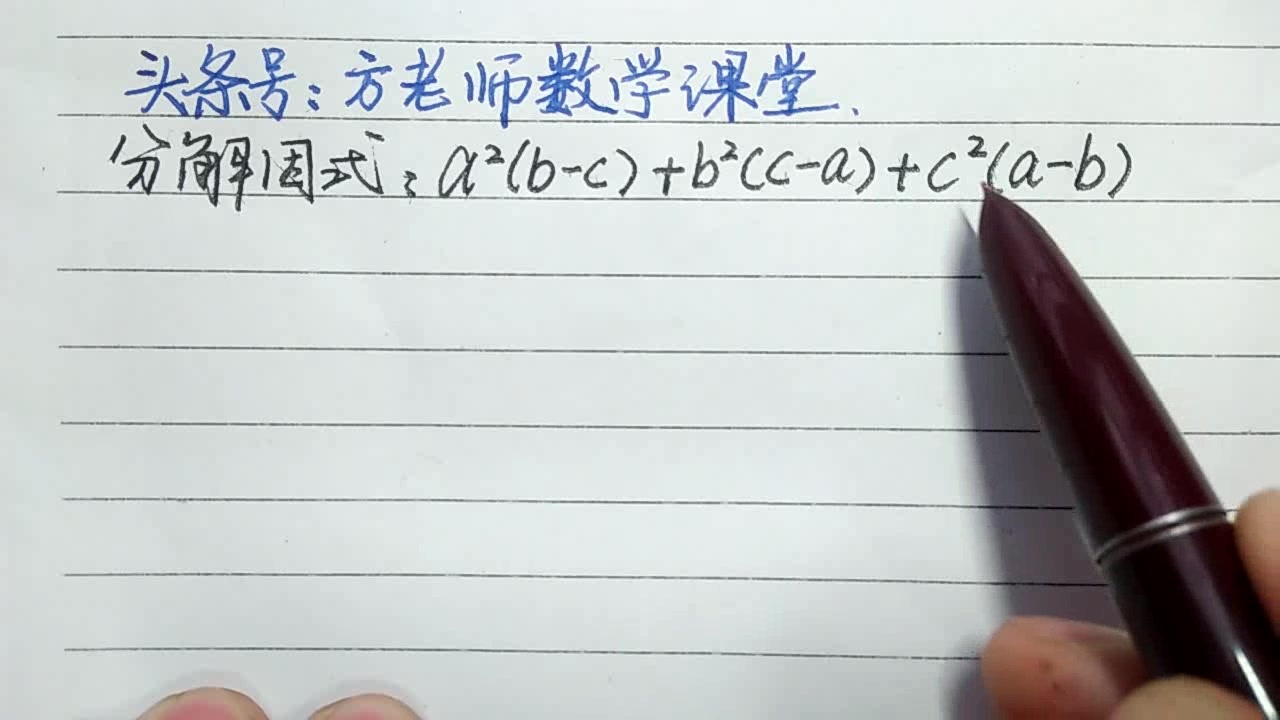 头条号:方老师数学课堂.
分解因式:a²(b-c)+b²(c-a)+c²(a-b)